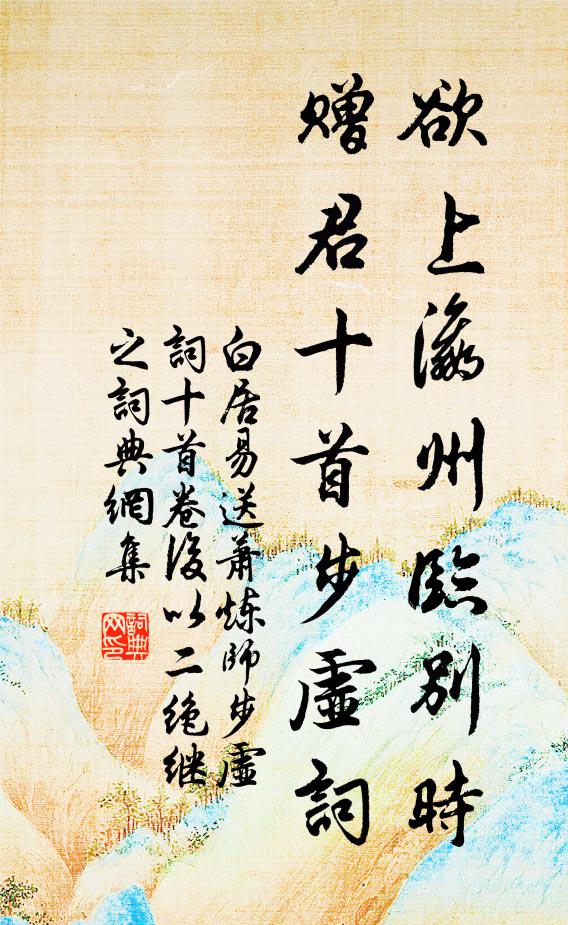 欲上瀛州臨別時
贈君十首步虛詞
白居易送蕭炼師步虛
詞十首卷後以二绝继
之詞典網集
詞典
网印